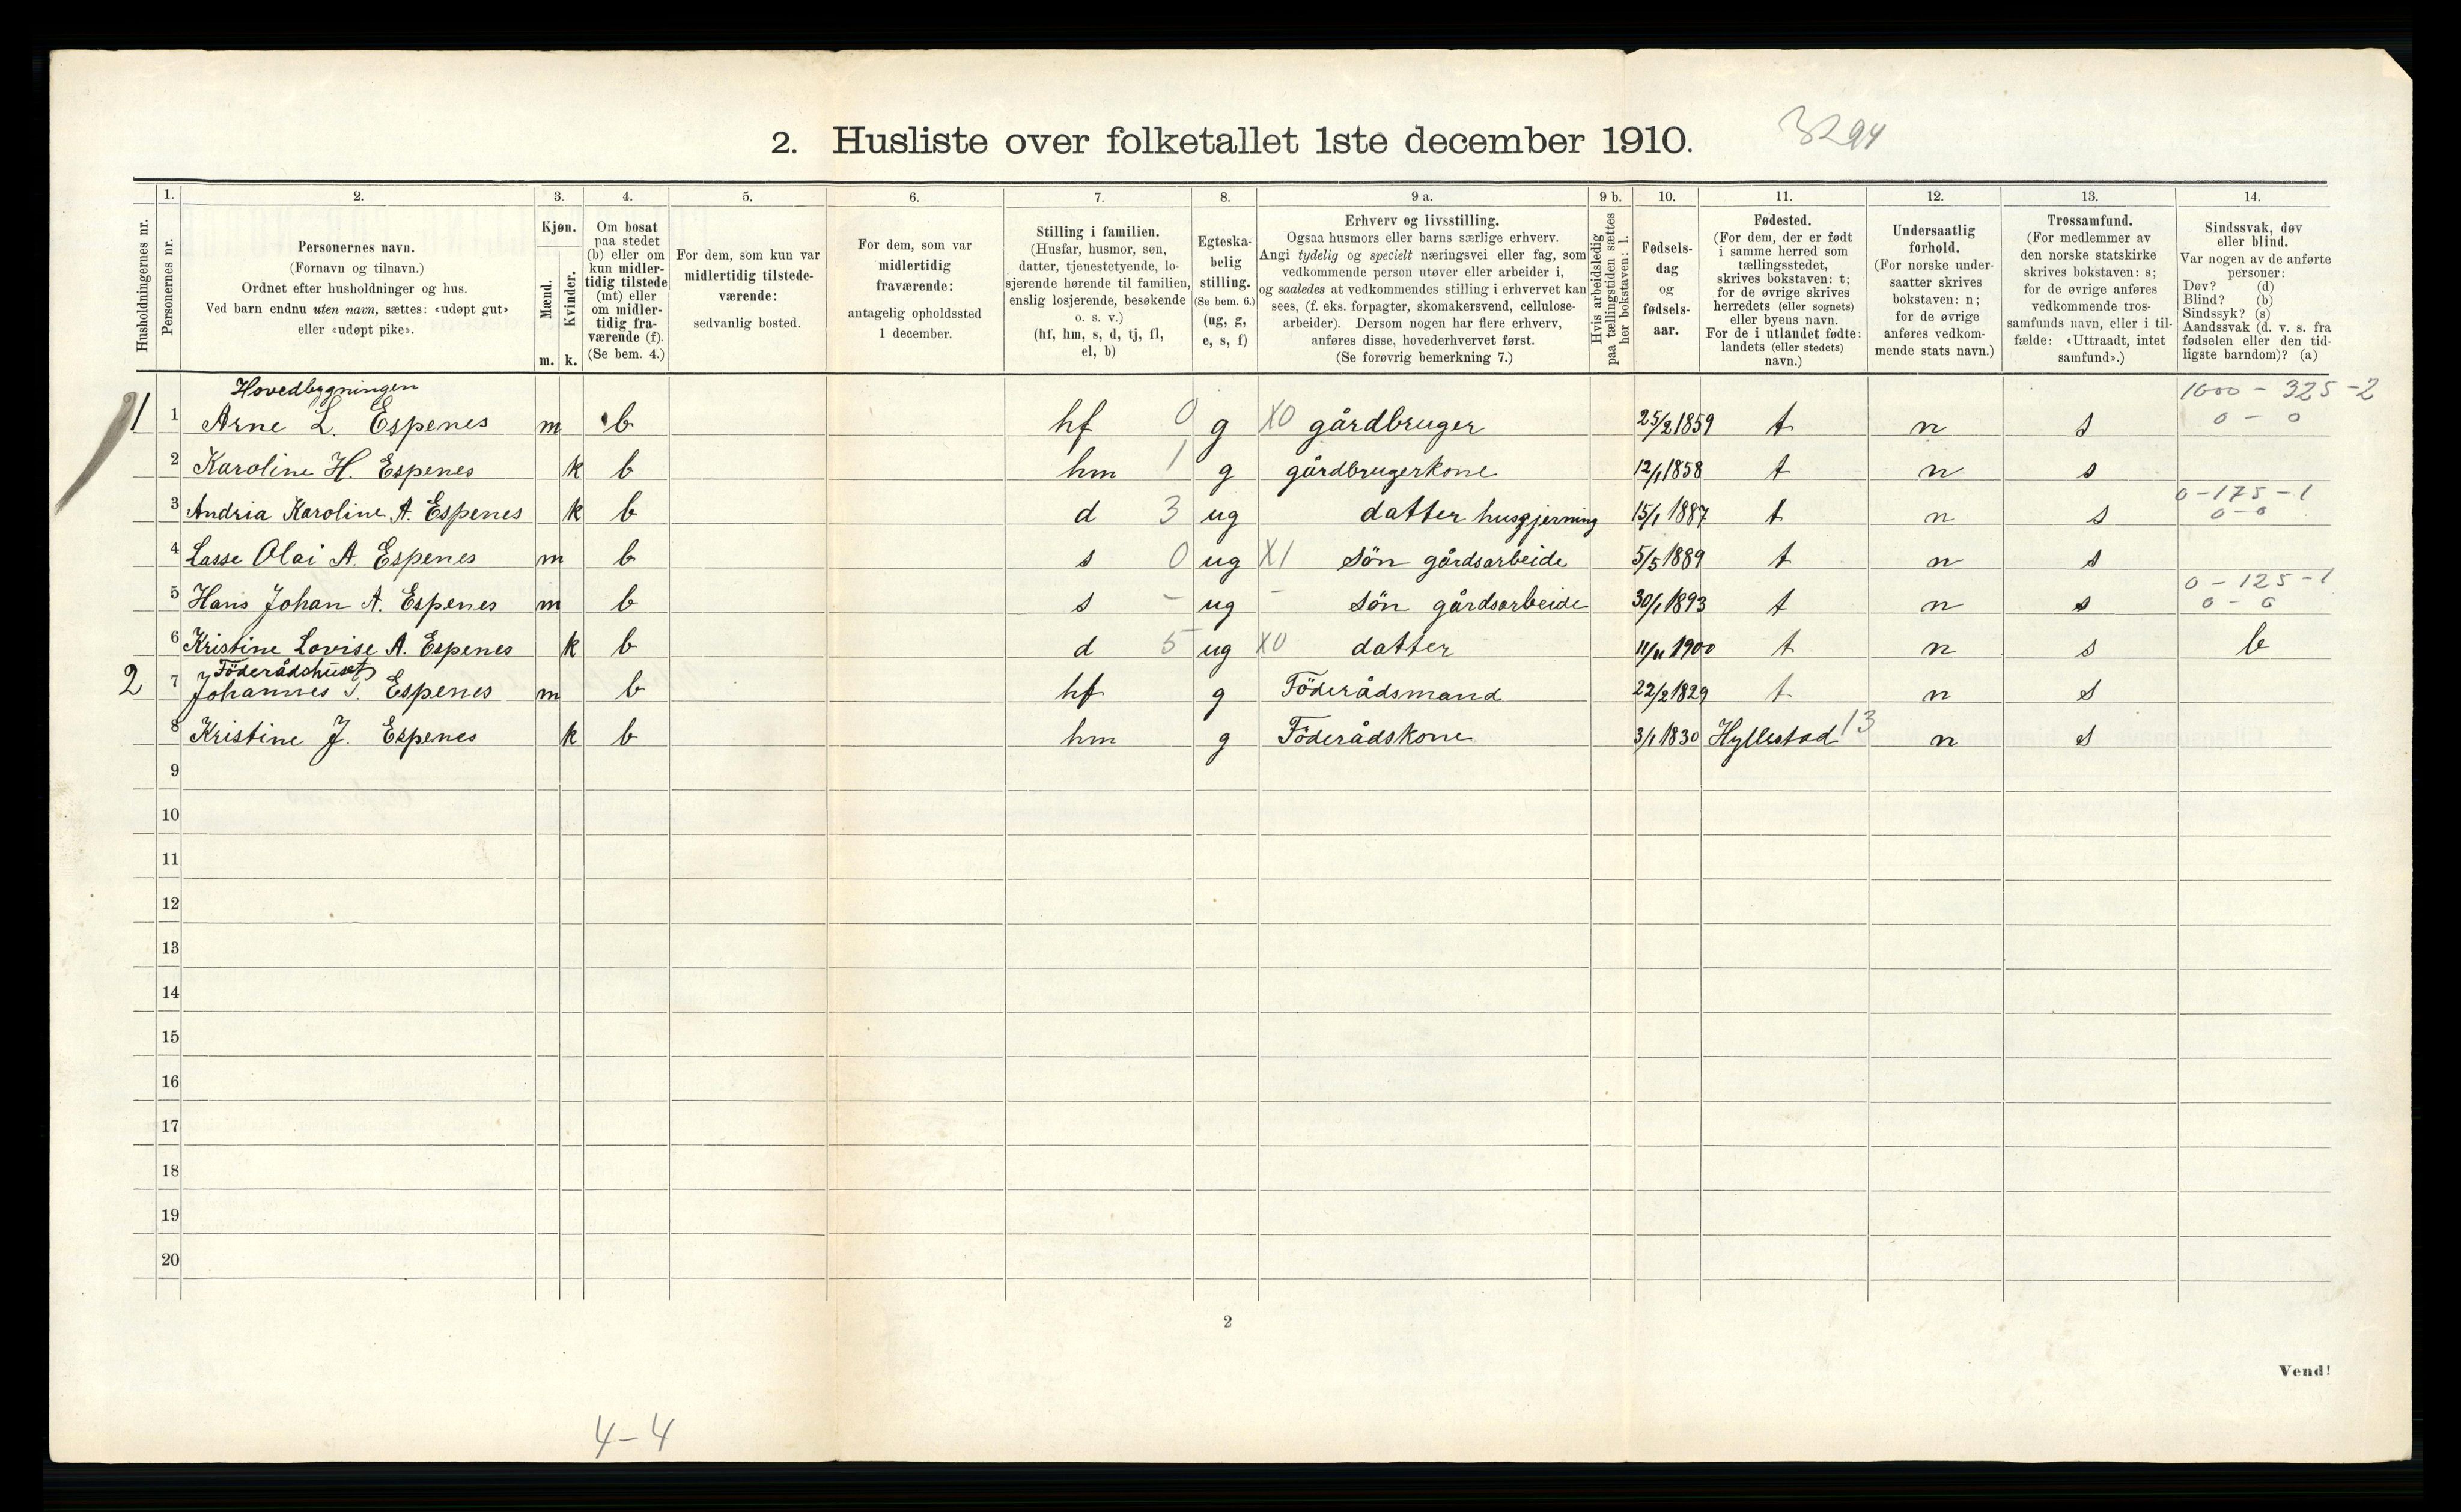 2. Husliste over folketallet 1ste december 1910.
3294
Husholdningernes nr.
1.
Personernes nr.
2.
Personernes navn.
(Fornavn og tilnavn.)
Ordnet efter husholdninger og hus.
Ved barn endnu uten navn, sættes: «udøpt gut»
eller «udøpt pike».
3.
Kjøn.
Mænd.
Kvinder.
m. k.
4.
Om bosat
paa stedet
(b) eller om
kun midler-
tidig tilstede
(mt) eller
om midler-
tidig fra-
værende (f).
(Se bem. 4.)
5.
For dem, som kun var
midlertidig tilstede-
værende:
sedvanlig bosted.
6.
For dem, som var
midlertidig
fraværende:
antagelig opholdssted
1 december.
7.
Stilling i familien.
(Husfar, husmor, søn,
datter, tjenestetyende, lo-
sjerende hørende til familien,
enslig losjerende, besøkende
o. s. v.)
(hf, hm, s, d, tj, fl,
el, b)
8.
Egteska-
belig
stilling.
(Se bem. 6.)
(ug, g,
e, s, f)
9 a.
Erhverv og livsstilling.
Ogsaa husmors eller barns særlige erhverv.
Angi tydelig og specielt næringsvei eller fag, som
vedkommende person utøver eller arbeider i,
og saaledes at vedkommendes stilling i erhvervet kan
sees, (f. eks. forpagter, skomakersvend, cellulose-
arbeider). Dersom nogen har flere erhverv,
anføres disse, hovederhvervet først.
(Se forøvrig bemerkning 7.)
9 b.
Hvis arbeidsledig
paa tællingstiden sættes
her bokstaven: l.
10.
Fødsels-
dag
og
fødsels-
aar.
11.
Fødested.
(For dem, der er født
i samme herred som
tællingsstedet,
skrives bokstaven: t;
for de øvrige skrives
herredets (eller sognets)
eller byens navn.
For de i utlandet fødte:
landets (eller stedets)
navn.)
12.
Undersaatlig
forhold.
(For norske under-
saatter skrives
bokstaven: n;
for de øvrige
anføres vedkom-
mende stats navn.)
13.
Trossamfund.
(For medlemmer av
den norske statskirke
skrives bokstaven: s;
for de øvrige anføres
vedkommende tros-
samfunds navn, eller i til-
fælde: «Uttraadt, intet
samfund».)
14.
Sindssvak, døv
eller blind.
Var nogen av de anførte
personer:
Døv? (d)
Blind? (b)
Sindssyk? (s)
Aandssvak (d. v. s. fra
fødselen eller den tid-
ligste barndom)? (a)
Hovedbygningen
1000 - 325 - 2
1 1 Arne L. Espenes m b hf 0 g X0 gårdbruger 25/2 1859 t n s 0 - 0
2 Karoline H. Espenes k b hm 1 g gårdbrugerkone 12/1 1858 t n s
0 - 175 - 1
3 Andria Karoline A. Espenes k b d 3 ug datter husgjerning 15/1 1887 t n s 0 - 0
4 Lasse Olai A. Espenes m b s 0 ug X1 Sön gårdsarbeide 5/5 1889 t n s
0 - 125 - 1
5 Hans Johan A. Espenes m b s - ug - Sön gårdsarbeide 30/1 1893 t n s 0 - 0
6 Kristine Lovise A. Espenes k b d 5 ug X0 datter 11/11 1900 t n s b
Föderådshuset
2 7 Johannes T. Espenes m b hf g Föderådsmand 22/2 1829 t n s
8 Kristine J. Espenes k b hm g Föderådskone 3/1 1830 Hyllestad 13 n s
9
10
11
12
13
14
15
16
17
18
19
20
2
Vend!
4-4